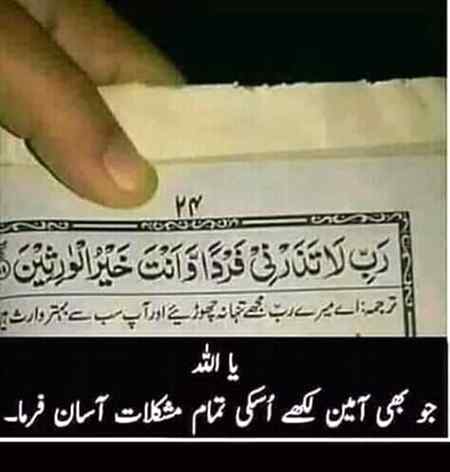 ۲۴
رَبِّ لَا تَذَرْنِیْ فَرْدًا وَّاَنْتَ خَیْرُ الْوٰرِثِیْنَ
ترجمہ: اے میرے رب مجھے تنہا نہ چھوڑیئے اور آپ سب سے بہتر وارث ہیں
یا اللہ
جو بھی آمین لکھے اُسکی تمام مشکلات آسان فرما۔